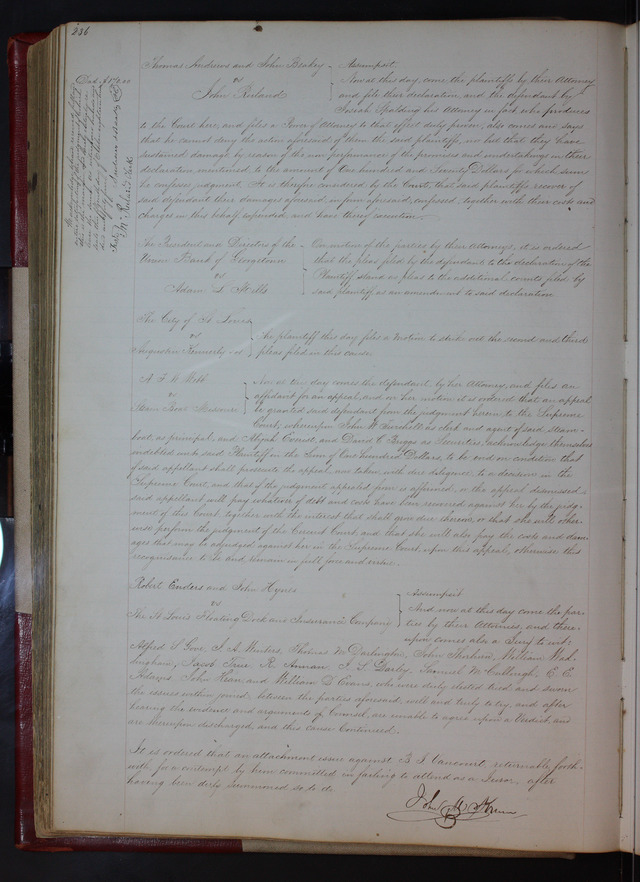 236
Thomas Andrews and John Beakey
vs
John Ruland
Assumpsit
Now at this day, come the plaintiffs by their Attorney
and file their declaration, and the defendant by
Josiah Spalding his Attorney in fact who produces
to the Court here, and files a Power of Attorney to that effect duly proven, also comes and says
that he cannot deny the action aforesaid of them the said plaintiffs, nor but that they have
sustained damage by reason of the non performance of the promises and undertakings in their
declaration mentioned, to the amount of One hundred and Seventy Dollars for which sum
he confesses judgment. It is therefore considered by the Court, that said plaintiffs recover of
said defendant their damages aforesaid, in form aforesaid, confessed, together with their costs and
charges in this behalf expended, and have thereof execution.
The President and Directors of the
Union Bank of Georgetown
vs
Adam L Mills
On motion of the parties by their Attorneys, it is ordered
that the pleas filed by the defendant to the declaration of the
Plaintiff stand as pleas to the additional counts filed by
said plaintiff as an amendment to said declaration
The City of St Louis
vs
Augustin Kennerly
The plaintiff this day files a motion to strike out the second and third
pleas filed in this cause.
A F W Webb
vs
Steam Boat Missouri
Now at this day comes the defendant by her Attorney, and files an
affidavit for an appeal, and on her motion it is ordered that an appeal
be granted said defendant from the judgment herein to the Supreme
Court, whereupon John W as clerk and agent of said steam-
boat, as principal, and and David C as Securities, acknowledge themselves
indebted unto said Plaintiff in the Sum of One hundred Dollars, to be void on condition that
if said appellant shall prosecute the appeal now taken with due diligence, to a decision in the
Supreme Court, and that if the judgment appealed from is affirmed, or the appeal dismissed
said appellant will pay whatever of debt and costs have been recovered against her by the judg-
ment of this Court, together with the interest that shall grow due thereon, or that she will other-
wise perform the judgment of the Circuit Court, and that she will also pay the costs and dam-
ages that may be adjudged against her in the Supreme Court, upon this appeal, otherwise this
recognizance to be and remain in full force and virtue.
Robert Enders and John Hynes
vs
The St Louis Floating Dock and Insurance Company
Assumpsit
And now at this day come the par-
ties by their Attornies, and there-
upon comes also a Jury to wit:
Alfred S Gove, J. A. Winters, Thomas M Darlington, John Shohan, William
Jacob True, R. Annan, J. S. Darby, Samuel McCullough, E. E.
Adams, John Kean, and William D Evans, who were duly elected tried and sworn
the issues within joined, between the parties aforesaid, well and truly to try, and after
hearing the evidence and arguments of Counsel, are unable to agree upon a Verdict, and
are thereupon discharged, and this cause Continued.
It is ordered that an attachment issue against B. F. Vancourt, returnable forth-
with for a contempt by him committed in failing to attend as a Juror, after
having been duly summoned so to do.
John M Krum